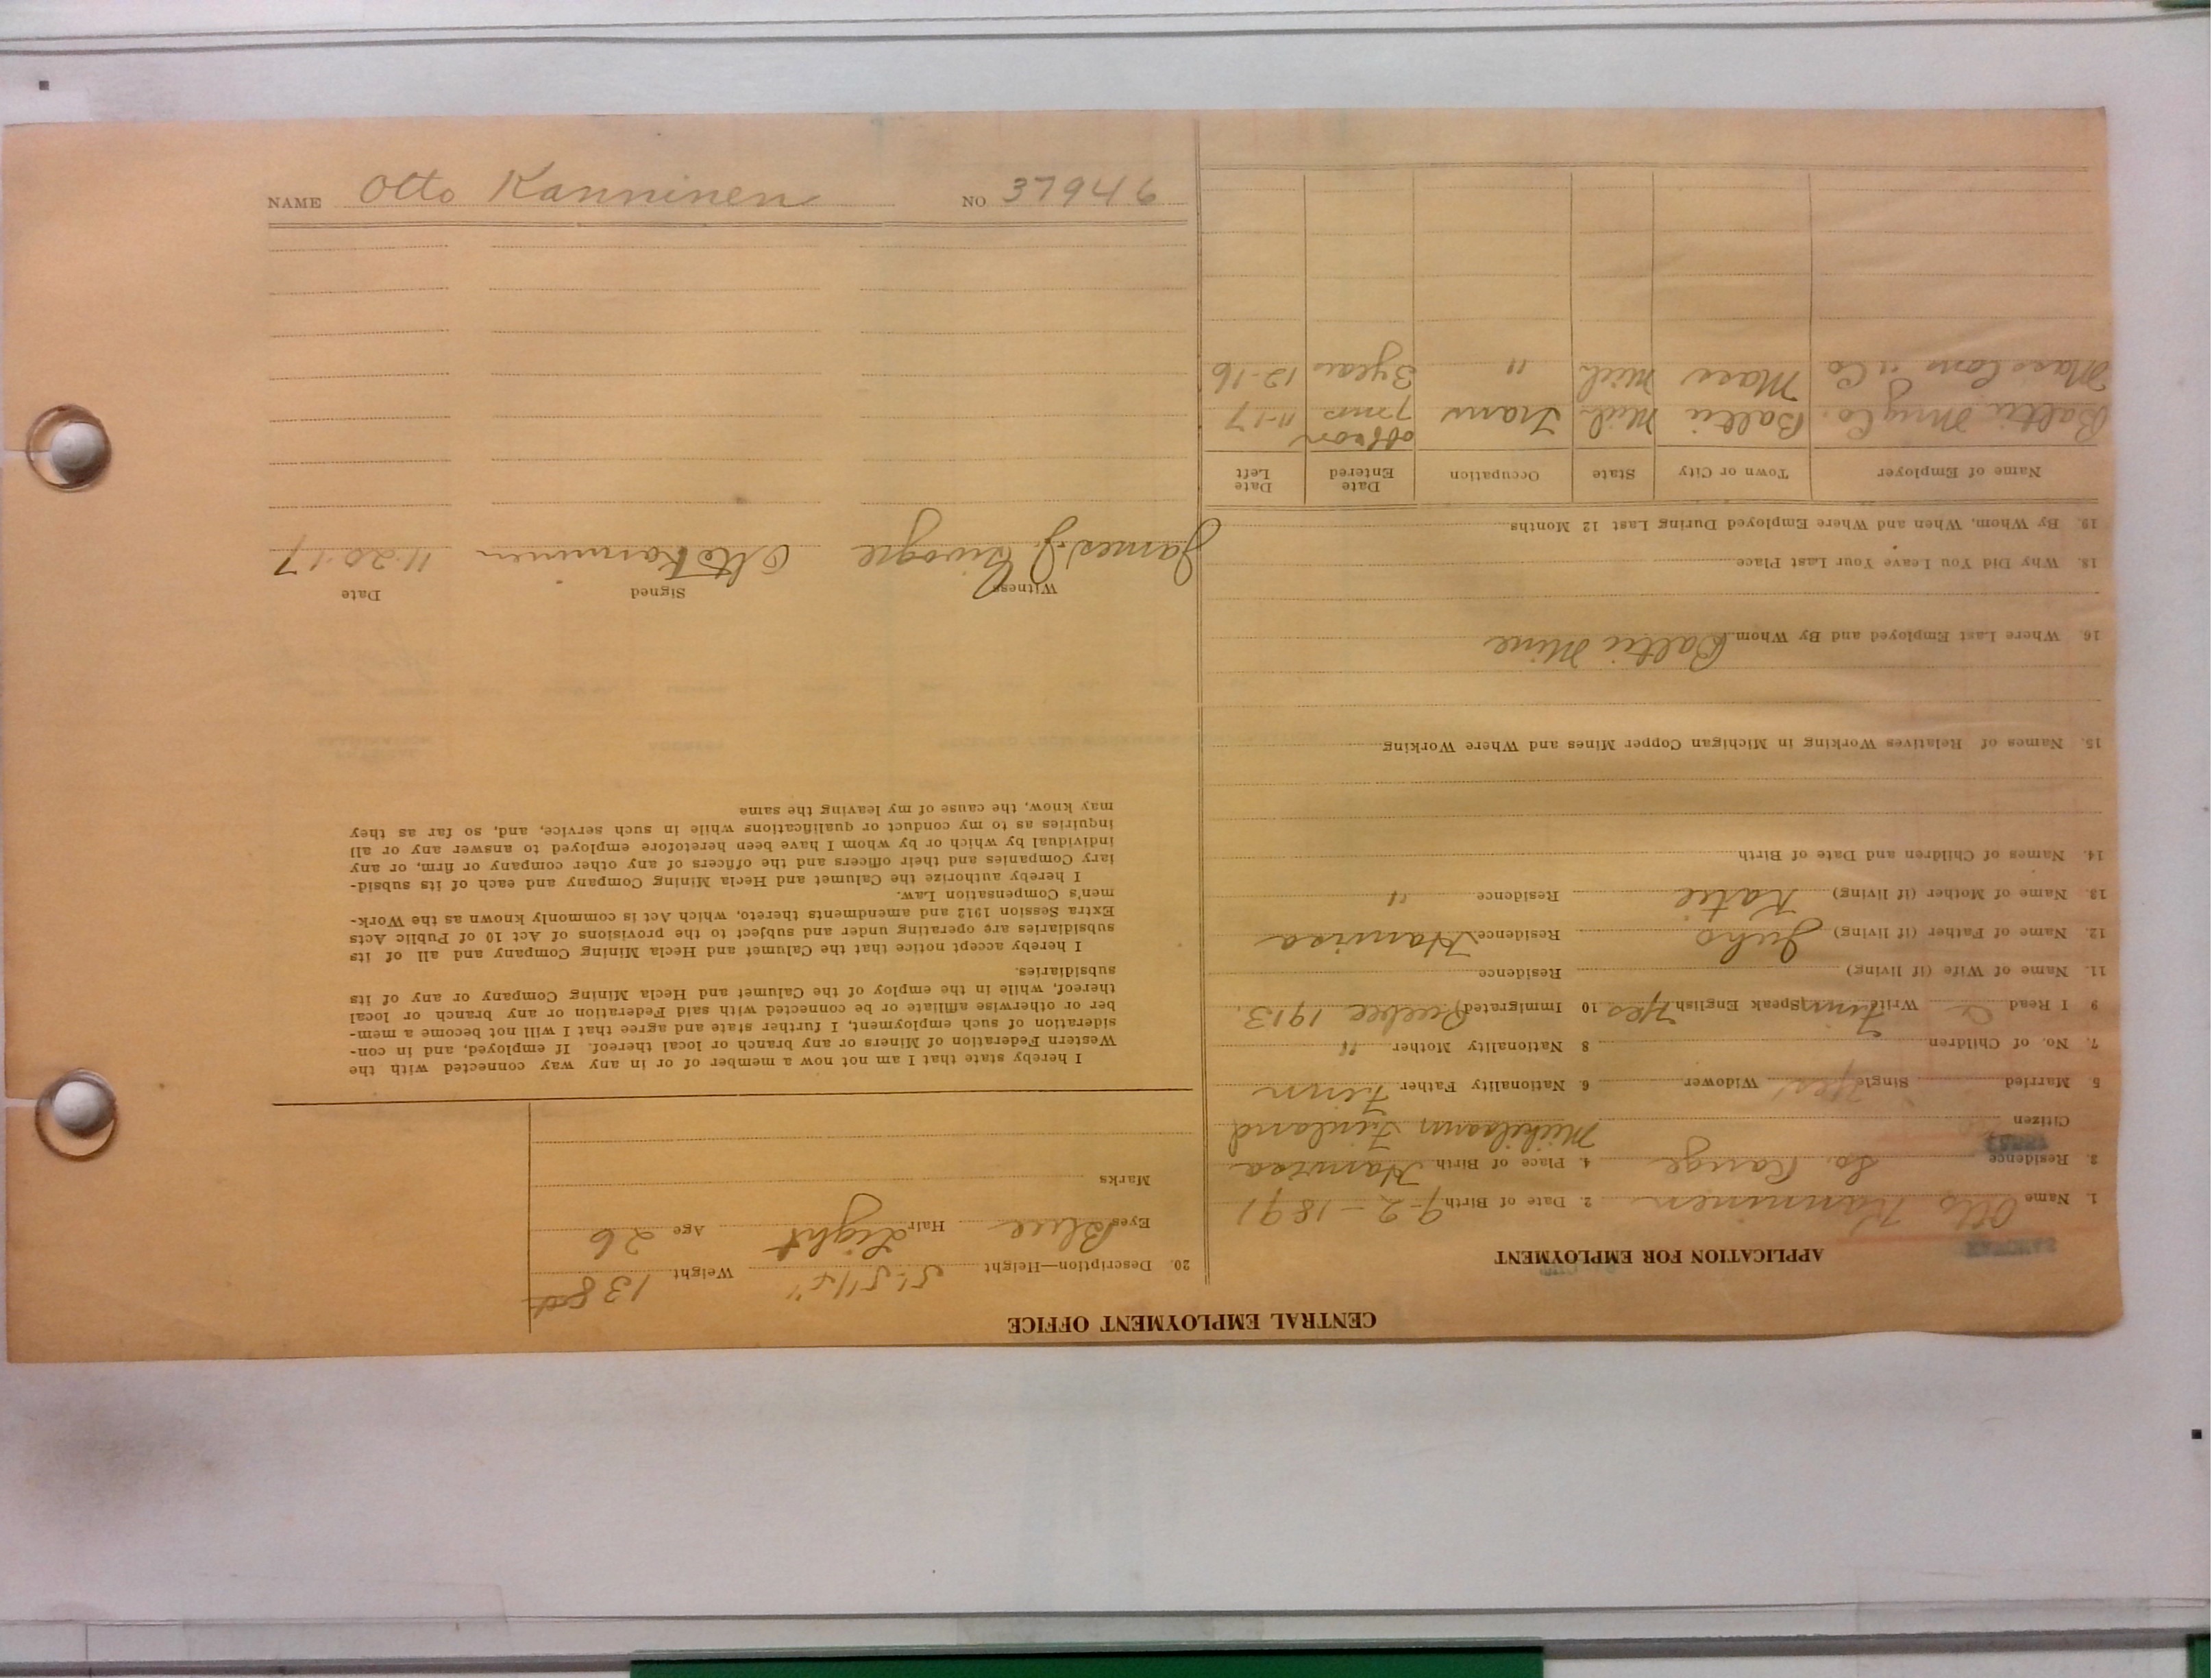 CENTRAL EMPLOYMENT OFFICE
APPLICATION FOR EMPLOYMENT
1. Name Otto Kanninen 2. Date of Birth 9-2-1891
3. Residence So. Range 4. Place of Birth
Citizen Finland
5. Married Single Yes Widower 6. Nationality Father Finn
7. No. of Children 8 Nationality Mother "
9 I Read & Write Finnish Speak English Yes 10 Immigrated 1913.
11. Name of Wife (if living) Residence
12. Name of Father (if living) Juho Residence
13. Name of Mother (if living) Katie Residence "
14. Names of Children and Date of Birth
15. Names of Relatives Working in Michigan Copper Mines and Where Working
16. Where Last Employed and By Whom Baltic Mine
18. Why Did You Leave Your Last Place
19. By Whom, When and Where Employed During Last 12 Months
Name of Employer Town or City State Occupation Date Entered Date Left
Baltic Mng Co. Baltic Mich Tram off & on 7 mos 11-17
Mass Cons " Co Mass Mich " 3 years 12-16
20. Description—Height 5' 5 1/2" Weight 138
Eyes Blue Hair Light Age 26
Marks
I hereby state that I am not now a member of or in any way connected with the
Western Federation of Miners or any branch or local thereof. If employed, and in con-
sideration of such employment, I further state and agree that I will not become a mem-
ber or otherwise affiliate or be connected with said Federation or any branch or local
thereof, while in the employ of the Calumet and Hecla Mining Company or any of its
subsidiaries.
I hereby accept notice that the Calumet and Hecla Mining Company and all of its
subsidiaries are operating under and subject to the provisions of Act 10 of Public Acts
Extra Session 1912 and amendments thereto, which Act is commonly known as the Work-
men's Compensation Law.
I hereby authorize the Calumet and Hecla Mining Company and each of its subsid-
iary Companies and their officers and the officers of any other company or firm, or any
individual by which or by whom I have been heretofore employed to answer any or all
inquiries as to my conduct or qualifications while in such service, and, so far as they
may know, the cause of my leaving the same
Witness Signed Date
James J. Otto Kanninen 11-20-17
NAME Otto Kanninen NO 37946